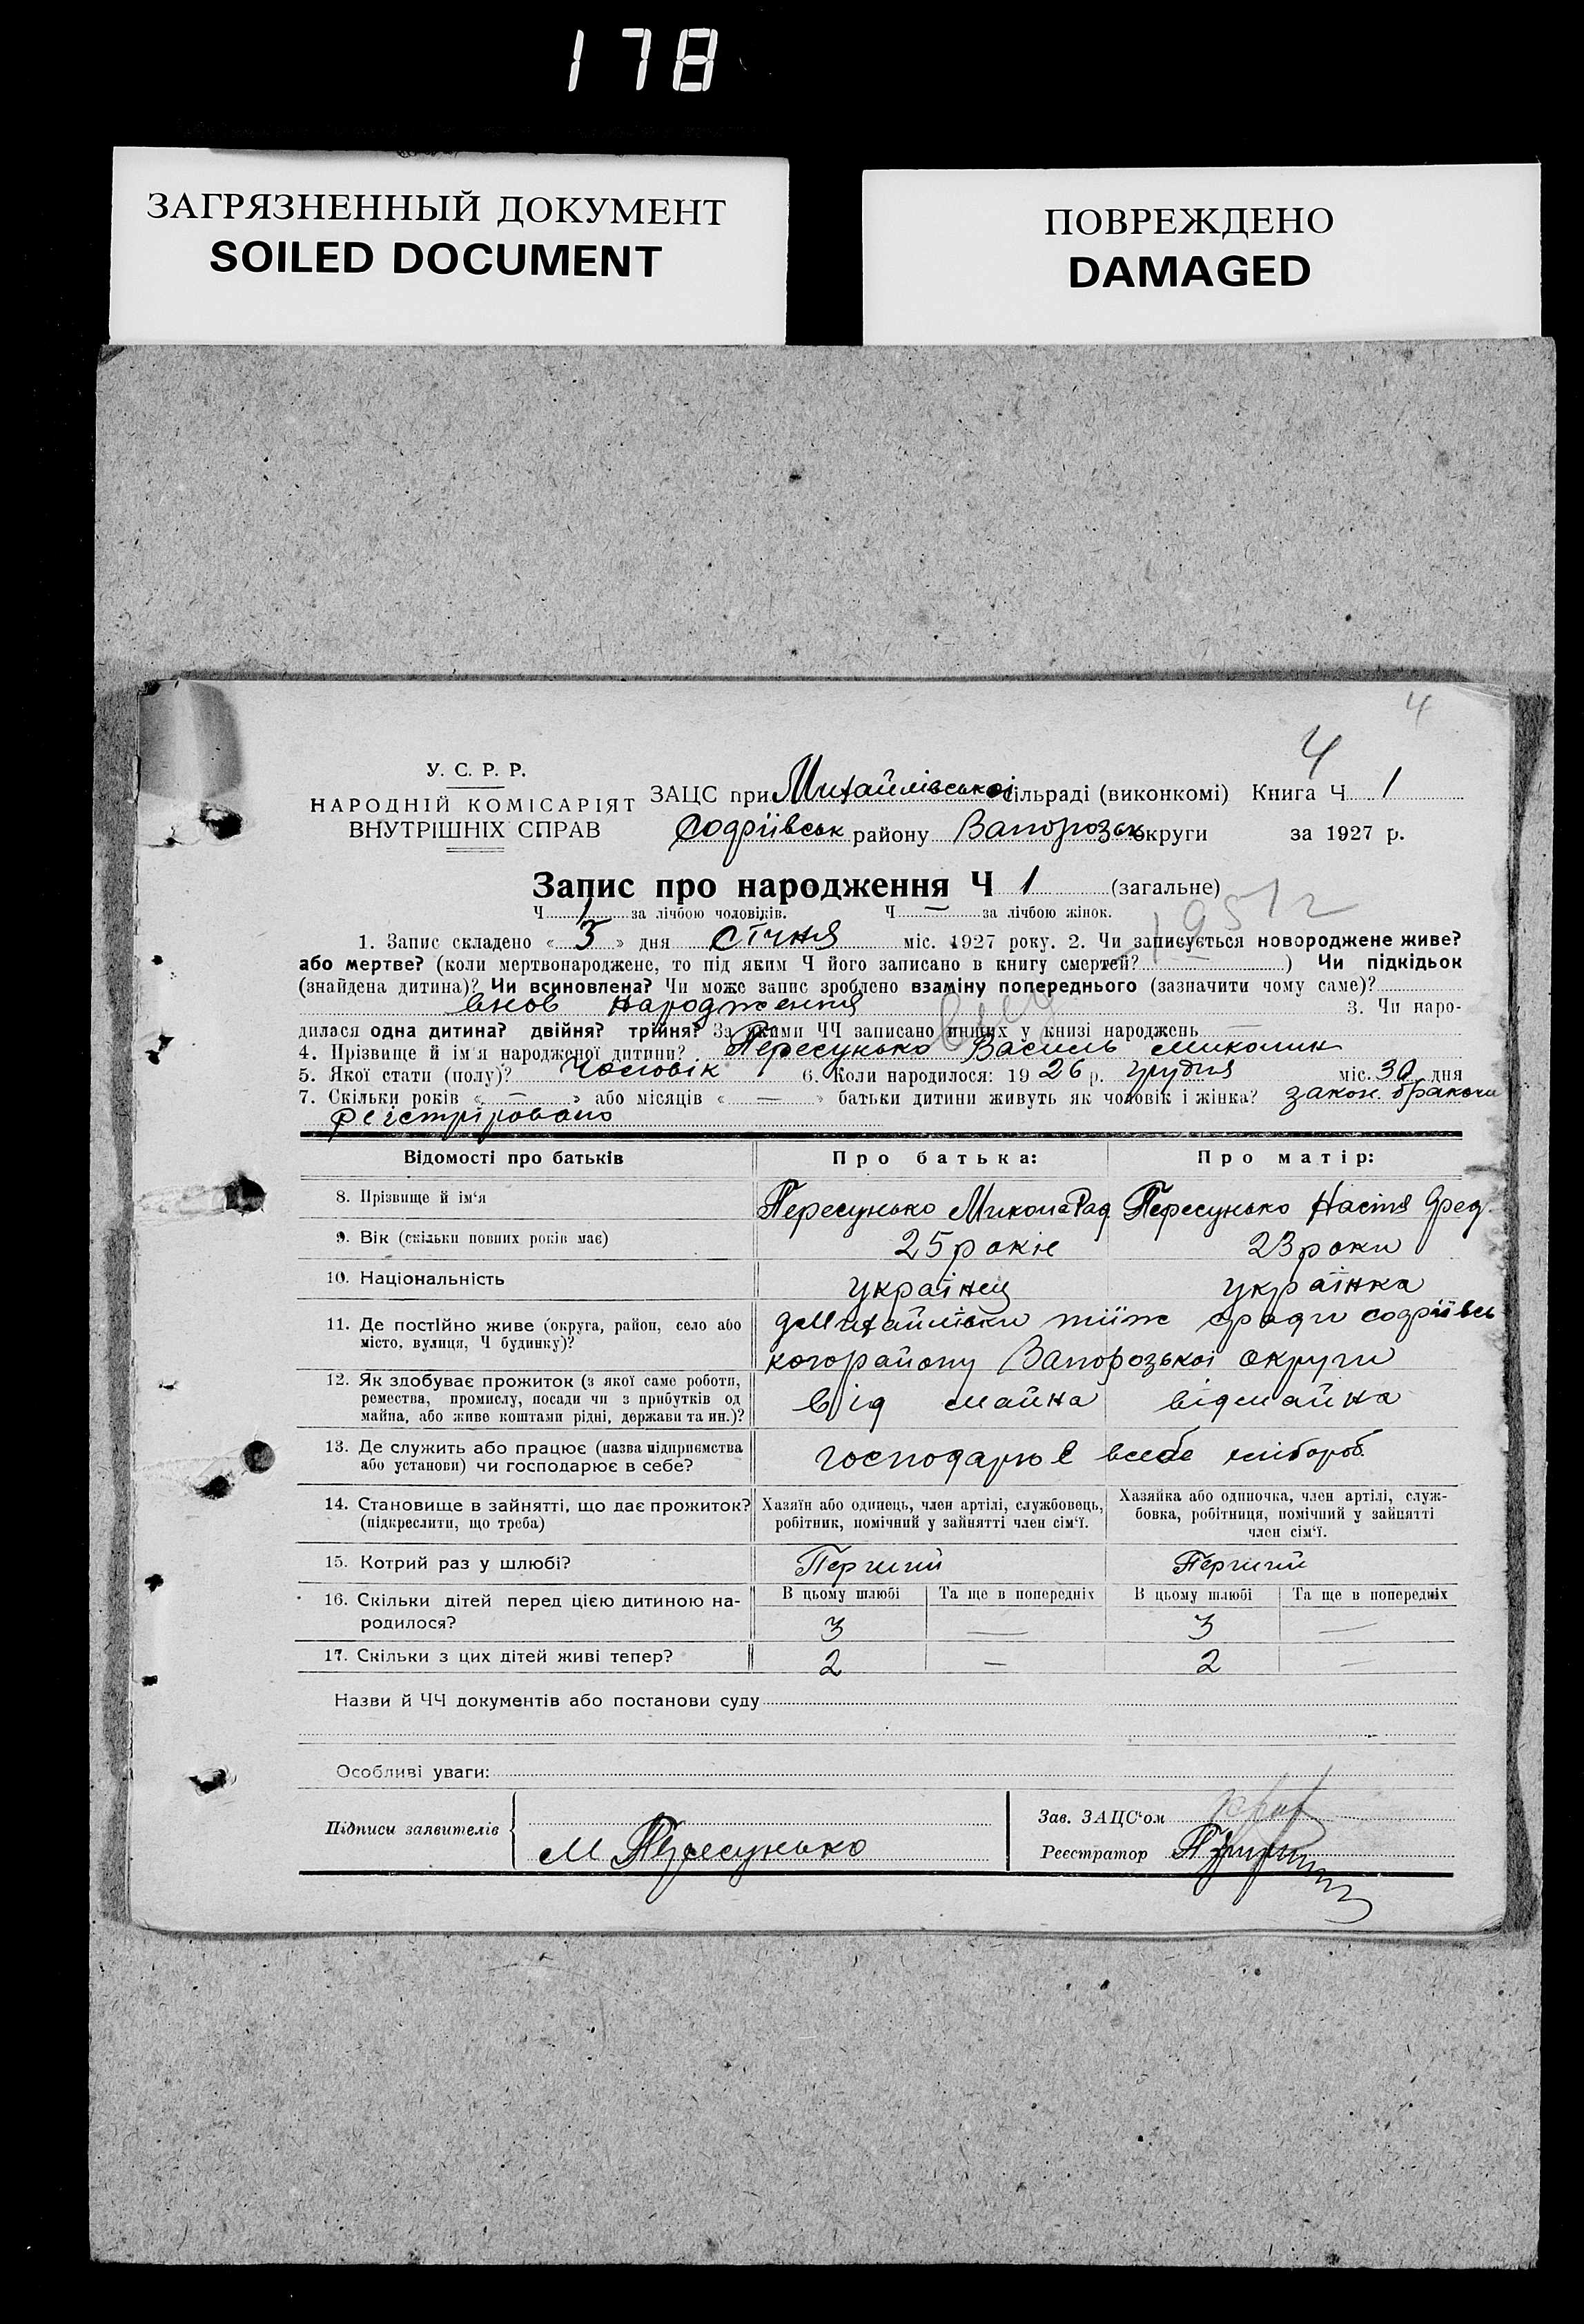 178
ЗАГРЯЗНЕННЫЙ ДОКУМЕНТ
SOILED DOCUMENT
ПОВРЕЖДЕНО
DAMAGED
4
4
У. С. Р. Р.
НАРОДНІЙ КОМІСАРІЯТ
ВНУТРІШНІХ СПРАВ
ЗАЦС при Михайлівської сільраді (виконкомі) Книга Ч 1
Софіївськ району Запорозьк округи за 1927 р.
Запис про народження Ч 1 (загальне)
Ч 1 за лічбою чоловіків. Ч — за лічбою жінок.
1. Запис складено « 3 » дня Січня міс. 1927 року. 2. Чи записується новороджене живе?
або мертве? (коли мертвонароджене, то під яким Ч його записано в книгу смертей? — ) Чи підкідьок
(знайдена дитина)? Чи всиновлена? Чи може запис зроблено взаміну попереднього (зазначити чому саме)?
внов народження 3. Чи наро-
дилася одна дитина? двійня? трійня? За якими ЧЧ записано инших у книзі народжень —
4. Прізвище й ім'я народженої дитини? Пересунько Василь Миколин
5. Якої стати (полу)? Чоловік 6. Коли народилося: 19 26 р. Грудня міс. 30 дня
7. Скільки років « — » або місяців « — » батьки дитини живуть як чоловік і жінка? закон. браком
регстріровано
Відомості про батьків Про батька: Про матір:
8. Прізвище й ім'я Пересунько Микола Пересунько Настя
9. Вік (скільки повних років має) 25 років 23 роки
10. Національність українец українка
11. Де постійно живе (округа, район, село або
місто, вулиця, Ч будинку)?
когорайону Запорозької округи
12. Як здобуває прожиток (з якої саме роботи,
ремества, промислу, посади чи з прибутків од
майна, або живе коштами рідні, держави та ин.)?
від майна від майна
13. Де служить або працює (назва підприємства
або установи) чи господарює в себе?
господарює всебе хлібороб.
14. Становище в зайнятті, що дає прожиток?
(підкреслити, що треба)
Хазяїн або одинець, член артілі, службовець,
робітник, помічний у зайнятті член сім'ї.
Хазяйка або одиночка, член артілі, служ-
бовка, робітниця, помічний у зайнятті
член сім'ї.
15. Котрий раз у шлюбі? Перший Перший
16. Скільки дітей перед цією дитиною на-
родилося?
В цьому шлюбі Та ще в попередніх В цьому шлюбі Та ще в попередніх
3 — 3 —
17. Скільки з цих дітей живі тепер? 2 — 2 —
Назви й ЧЧ документів або постанови суду
Особливі уваги:
Підписи заявителів
М Пересунько
Зав. ЗАЦС'ом
Реєстратор